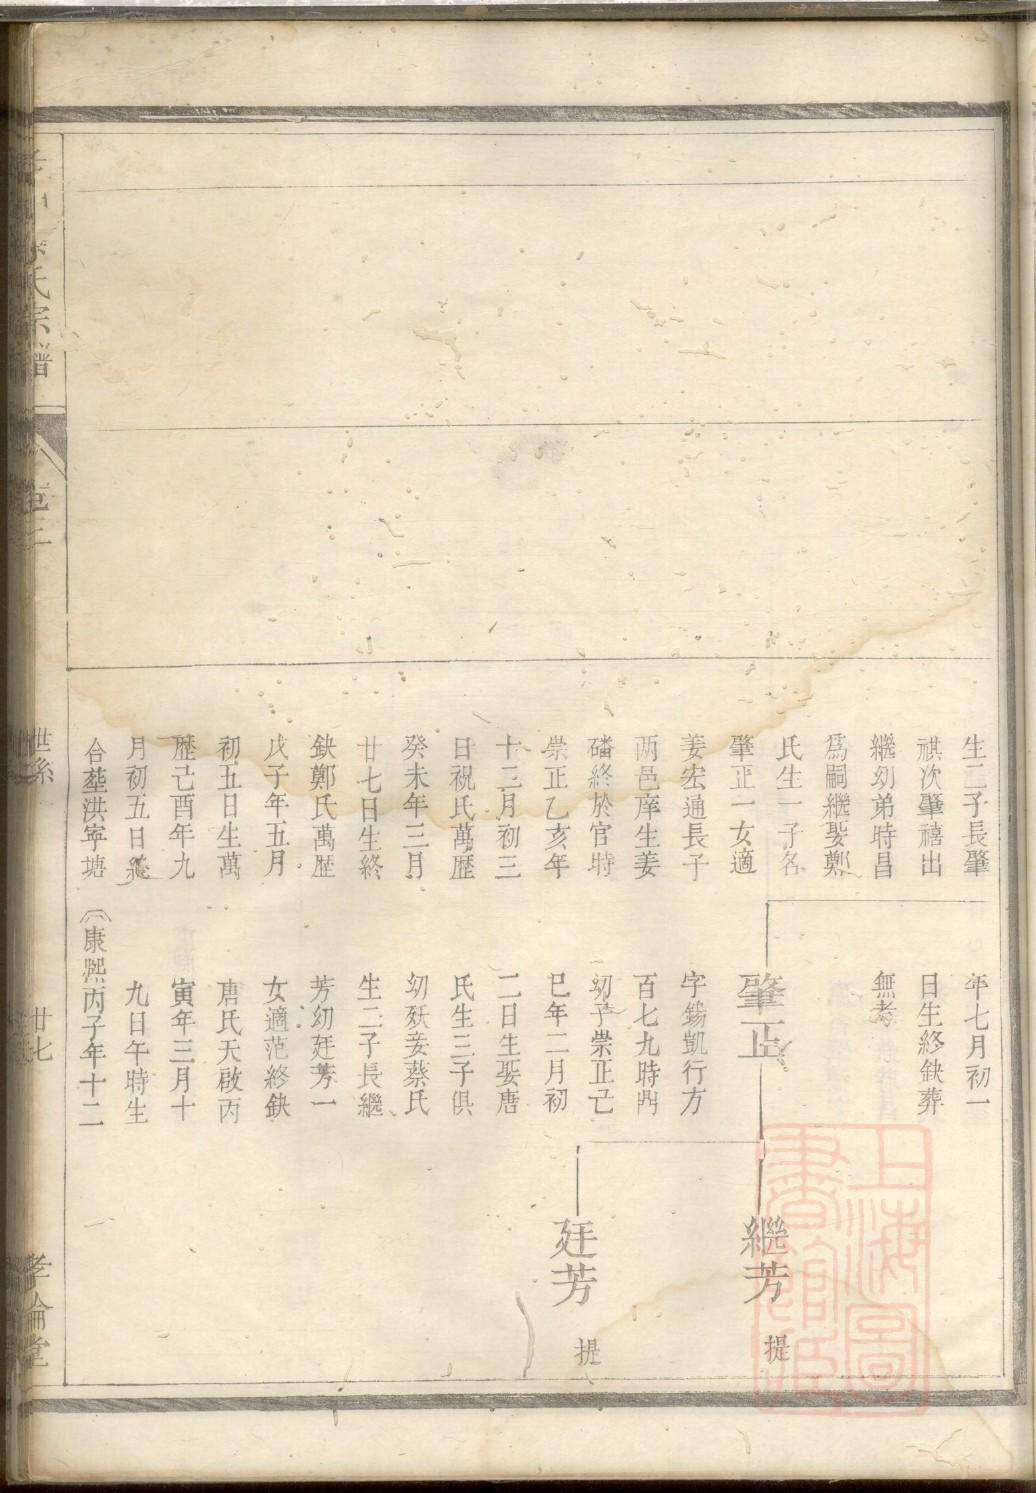 生二子長肇
祺次肇禧出
繼幼弟時昌
爲嗣繼娶鄭
氏生一子名
肇正一女適
姜宏通長子
两邑庠生姜
磻終於官時
崇正乙亥年
十二月初三
日祝氏萬歴
癸未年三月
廿七日生終
鈌鄭氏萬歴
戊子年五月
初五日生萬
歴己酉年九
月初五日終
合塟洪寕塘
年七月初一
日生終鈌葬
無考
肇正
字錫凱行方
百七九時閗
幼子崇正己
巳年二月初
二日生娶唐
氏生三子俱
幼殀妾蔡氏
生二子長繼
芳幼廷芳一
女適范終鈌
唐氏天啟丙
寅年三月十
九日午時生
康熙丙子年十二
繼芳
提
廷芳
提
氏宗譜
卷三
世系
廿七
孝倫堂
上海圖
書館藏